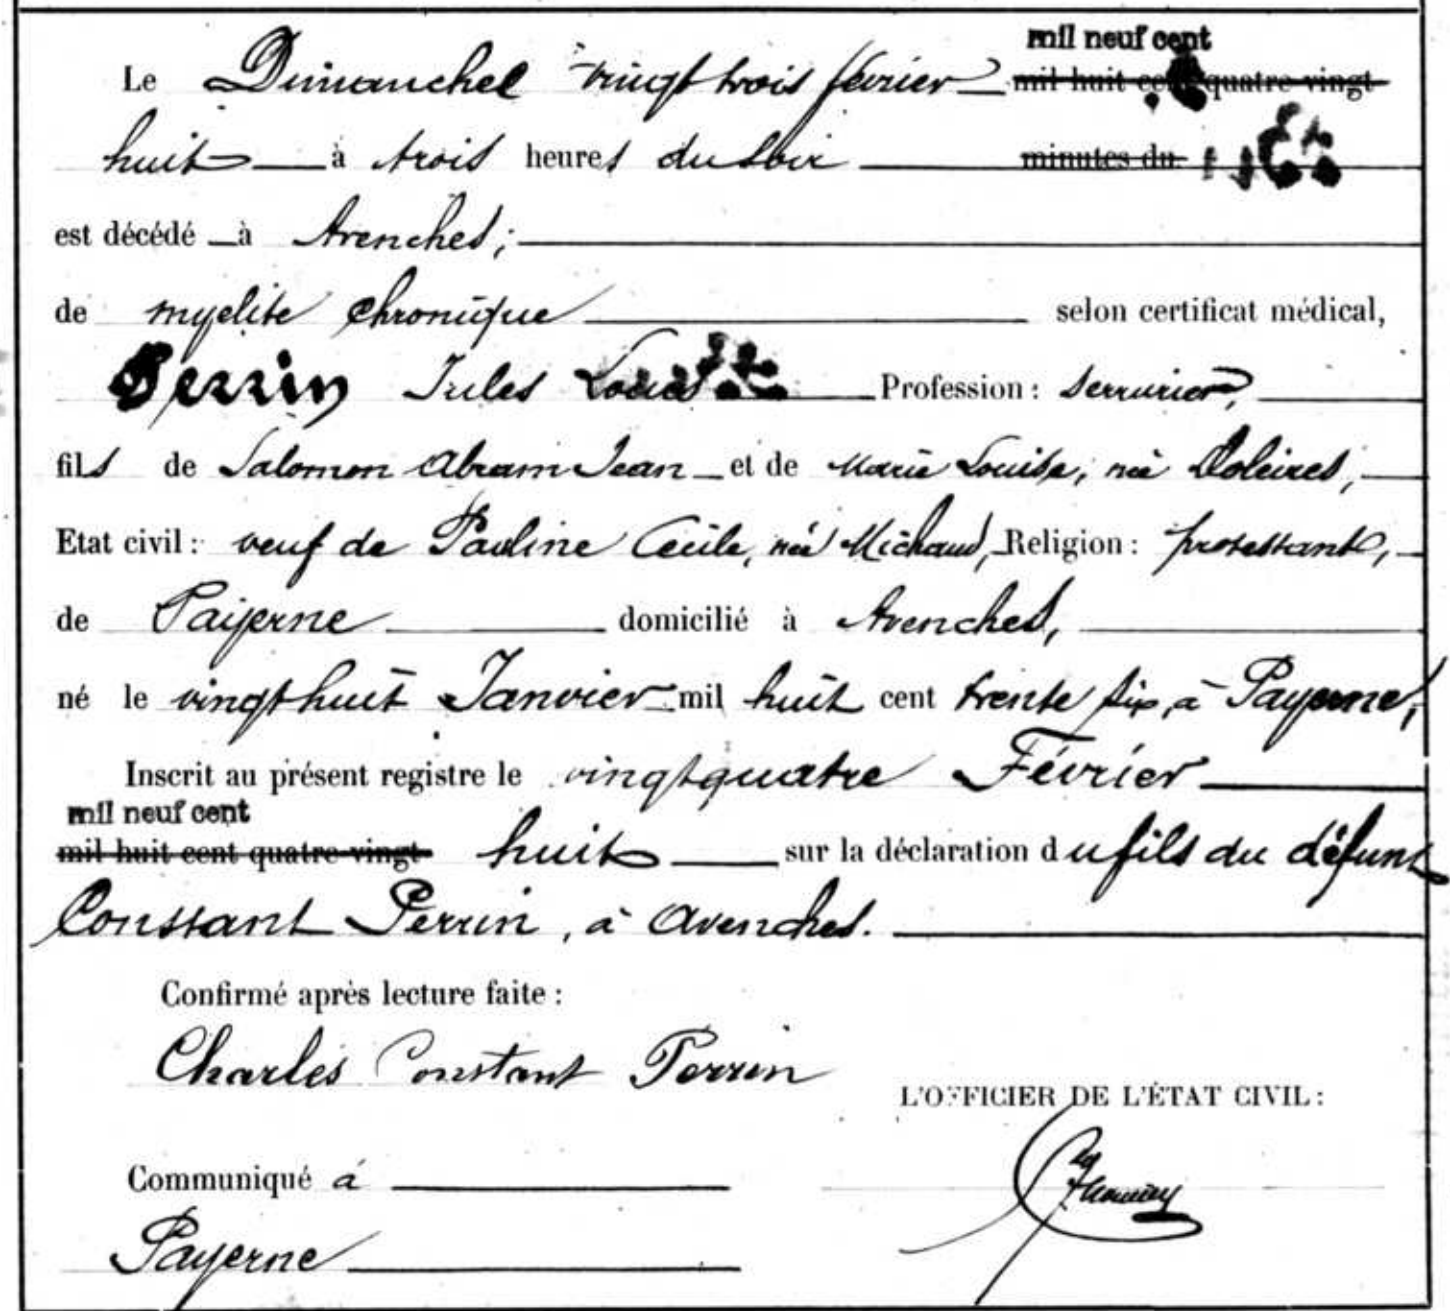 mil neuf cent
Le Dimanche vingt trois février mil huit cent quatre-vingt
huit à trois heures du soir minutes du
est décédé à Avenches;
de myelite chronique selon certificat médical,
Perrin Jules Louis Profession: serrurier,
fils de Salomon Abram Jean et de Marie Louise, née
Etat civil: veuf de Pauline Cécile, née Michaud, Religion: protestant,
de Payerne domicilié à Avenches,
né le vingt huit Janvier mil huit cent trente six, à Payerne,
Inscrit au présent registre le vingt quatre Février
mil neuf cent
mil huit cent quatre-vingt huit sur la déclaration du fils du défunt
Constant Perrin, à Avenches.
Confirmé après lecture faite:
Charles Constant Perrin
L'OFFICIER DE L'ÉTAT CIVIL:
Communiqué à
Payerne